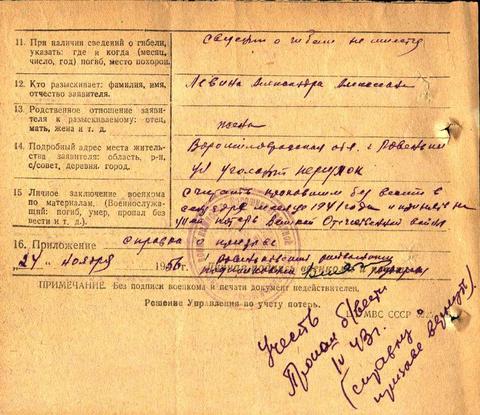 11. При наличии сведений о гибели, указать: где и когда (месяц, число, год) погиб, место похорон.
сведений о гибели не имеется
12. Кто разыскивает: фамилия, имя, отчество заявителя.
Левина Александра
13. Родственное отношение заявителя к разыскиваемому: отец, мать, жена и т. д.
жена
14. Подробный адрес места жительства заявителя: область, р-н, с/совет, деревня, город.
Ворошиловградская обл. г. Ровеньки
ул
15 Личное заключение военкома по материалам. (Военнослужащий: погиб, умер, пропал без вести и т. д.).
считать пропавшим без вести в
месяце 1941 года и
потерь Великой Отечественной войны
16. Приложение справка о призыве
"24" ноября 1956
ПРИМЕЧАНИЕ. Без подписи военкома и печати документ недействителен.
Решение Управления по учету потерь.
МВС СССР
Учесть
Пропал б/вести
IV 43 г.
(справку о
призыве вернуть).